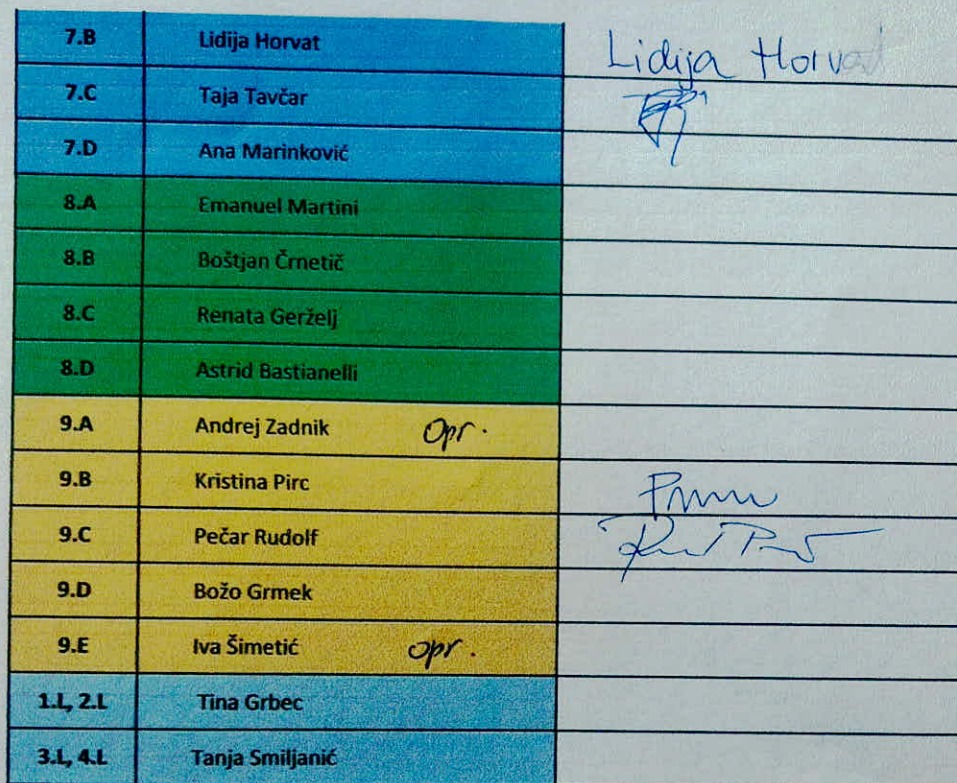 7.B Lidija Horvat Lidija Horvat
7.C Taja Tavčar
7.D Ana Marinković
8.A Emanuel Martini
8.B Boštjan Črnetič
8.C Renata Gerželj
8.D Astrid Bastianelli
9.A Andrej Zadnik Opr.
9.B Kristina Pirc
9.C Pečar Rudolf
9.D Božo Grmek
9.E Iva Šimetić opr.
1.L, 2.L Tina Grbec
3.L, 4.L Tanja Smiljanić